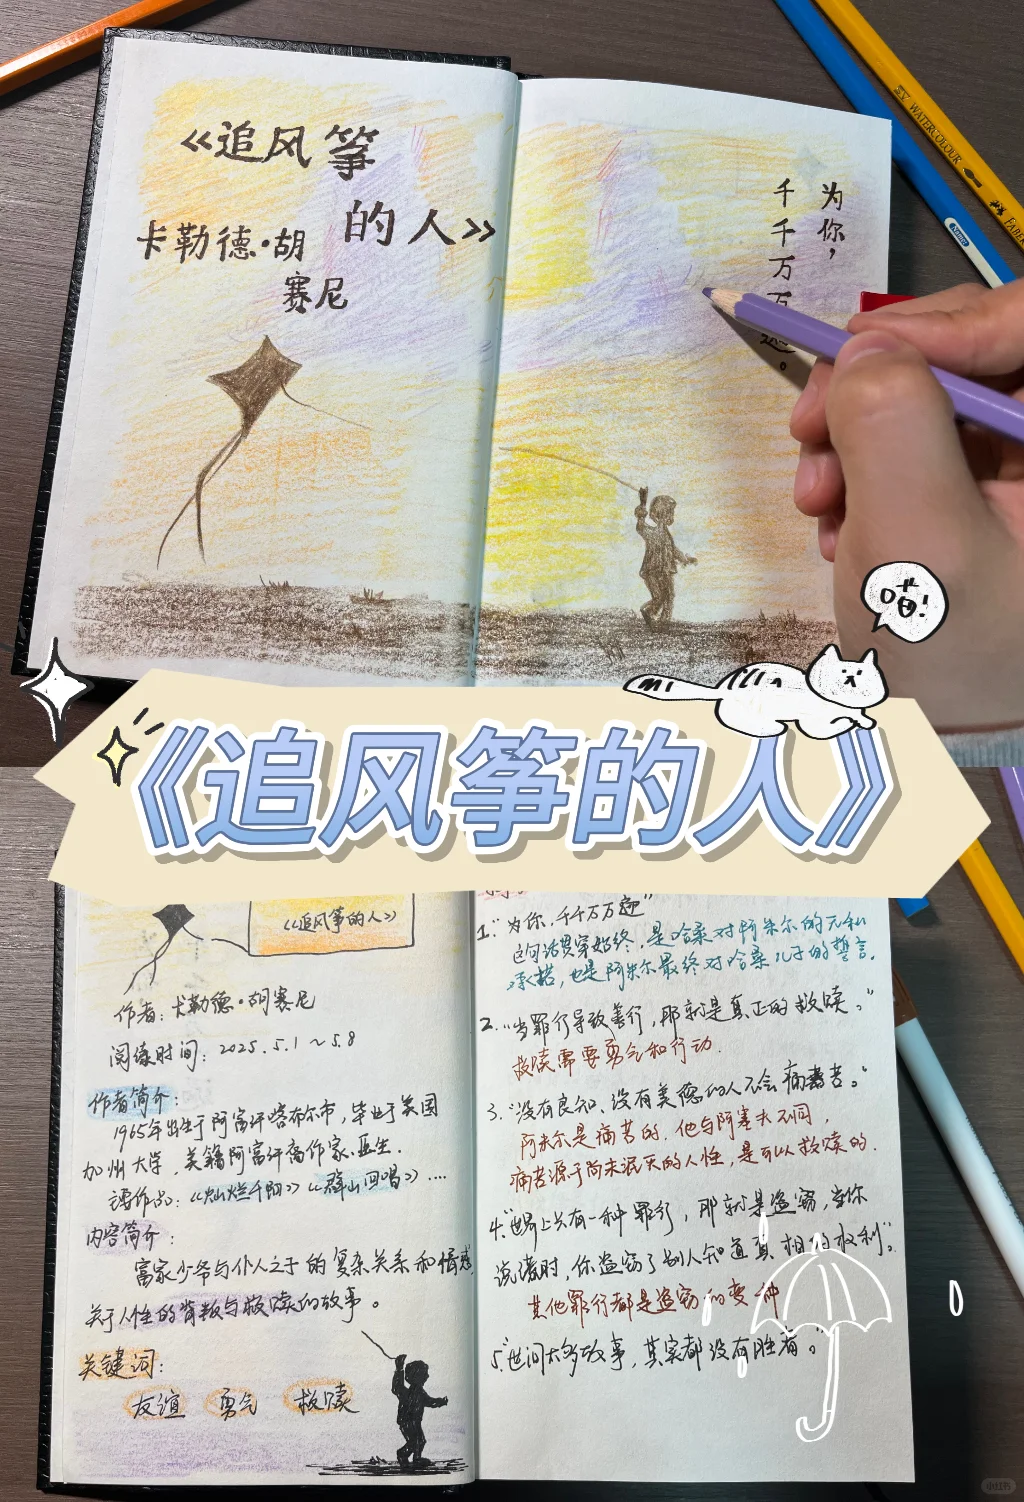 《追风筝
的人》
卡勒德·胡
赛尼
为你，
千千万万
。
WATERCOLOUR
FABER
喵!
《追风筝的人》
《追风筝的人》
作者：卡勒德·胡赛尼
阅读时间：2025.5.1～5.8
作者简介：
1965年出生于阿富汗喀布尔市，毕业于美国
加州大学，美籍阿富汗裔作家、医生.
谭作品：《灿烂千阳》《群山回唱》....
内容简介：
富家少爷与仆人之子的复杂关系和情感，
关于人性的背叛与救赎的故事。
关键词：
友谊 勇气 救赎
1."为你，千千万万遍"
这句话贯穿始终，是哈桑对阿米尔的无私
承诺，也是阿米尔最终对哈桑儿子的誓言.
2."当罪行导致善行，那就是真正的救赎。"
救赎需要勇气和行动.
3."没有良知、没有美德的人不会痛苦。"
阿米尔是痛苦的，他与阿塞夫不同
痛苦源于尚未泯灭的人性，是可以救赎的.
4."世界上只有一种罪行，那就是盗窃，当你
说谎时，你盗窃了别人知道真相的权利"。
其他罪行都是盗窃的变种
5."世间大多故事，其实都没有胜者。"
小红书